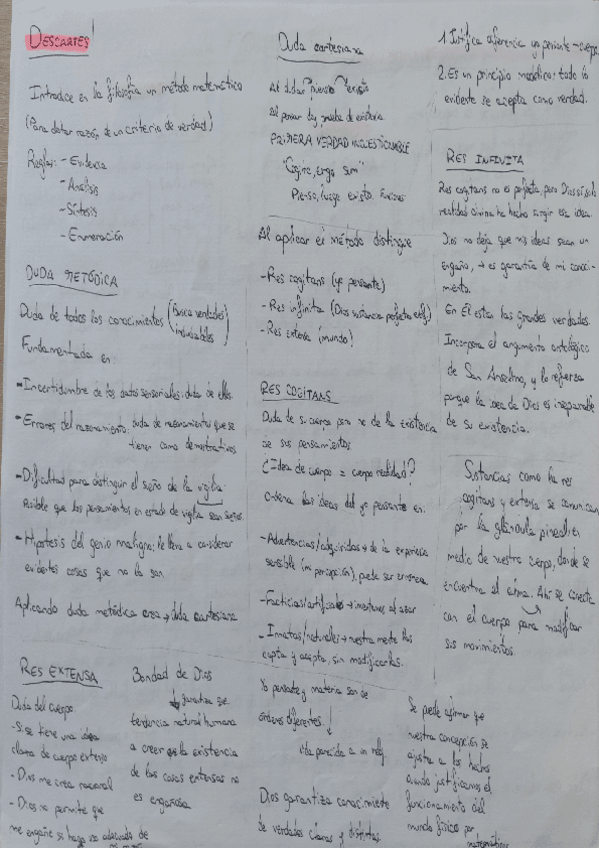 DESCARTES
Introduce en la filosofía un método matemático
(Para dotar razón de un criterio de verdad)
Reglas: - Evidencia
- Análisis
- Síntesis
- Enumeración
DUDA METÓDICA
Duda de todos los conocimientos (Busca verdades indudables)
Fundamentada en:
- Incertidumbre de los datos sensoriales: duda de ellos
- Errores del razonamiento: duda de razonamientos que se
tienen como demostrativos
- Dificultad para distinguir el sueño de la vigilia:
Posible que los pensamientos en estado de vigilia sean sueños.
- Hipótesis del genio maligno: le lleva a considerar
evidentes cosas que no lo son
Aplicando duda metódica crea → duda cartesiana
Duda cartesiana
Al dudar pienso existo
Al pensar doy prueba de existencia
PRIMERA VERDAD INCUESTIONABLE
"Cogito, ergo sum"
Pienso, luego existo
Al aplicar el método distingue
- Res cogitans (yo pensante)
- Res infinita (Dios sustancia perfecta)
- Res extensa (mundo)
RES COGITANS
Duda de su cuerpo pero no de la existencia
de sus pensamientos
¿Idea de cuerpo = cuerpo realidad?
Ordena las ideas del yo pensante en:
- Adventicias/adquiridas → de la experiencia
sensible (mi percepción), puede ser errónea
- Facticias/artificiales → invenciones al azar
- Innatas/naturales → nuestra mente las
capta y acepta, sin modificarlas.
1. Justifica diferencia yo pensante - cuerpo
2. Es un principio modélico: todo lo
evidente se acepta como verdad.
RES INFINITA
Res cogitans no es perfecta, pero Dios sí, sola
realidad divina ha hecho surgir esa idea.
Dios no deja que mis ideas sean un
engaño, → es garantía de mi conoci-
miento.
En Él están las grandes verdades.
Incorpora el argumento ontológico
de San Anselmo, y lo refuerza
porque la idea de Dios es inseparable
de su existencia.
Sustancias como la res
cogitans y extensa se comunican
por la glándula pineal, en
medio de nuestro cuerpo, donde se
encuentra el alma. Ahí se conecta
con el cuerpo para modificar
sus movimientos.
RES EXTENSA
Duda del cuerpo
- Si se tiene una idea
clara de cuerpo extenso
- Dios me crea racional
- Dios no permite que
me engañe si hago uso adecuado de
Bondad de Dios
garantiza que
tendencia natural humana
a creer que la existencia
de las cosas extensas no
es engañosa
Yo pensante y materia son de
órdenes diferentes.
vida parecida a un reloj
Dios garantiza conocimiento
de verdades claras y distintas
Se puede afirmar que
nuestra concepción se
ajusta a los hechos
cuando justificamos el
funcionamiento del
mundo físico por
matemáticas